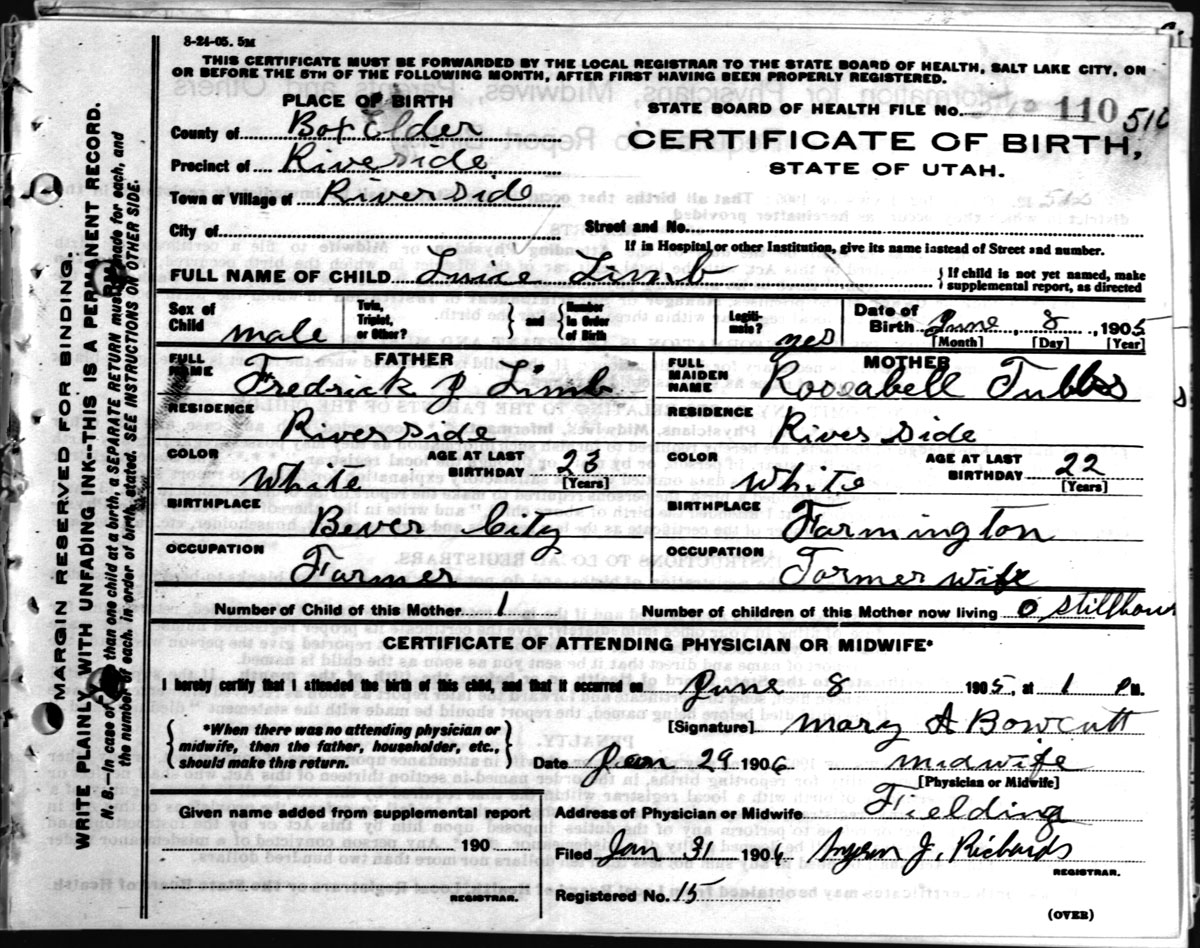 8-24-05. 5M
THIS CERTIFICATE MUST BE FORWARDED BY THE LOCAL REGISTRAR TO THE STATE BOARD OF HEALTH, SALT LAKE CITY, ON
OR BEFORE THE 5TH OF THE FOLLOWING MONTH, AFTER FIRST HAVING BEEN PROPERLY REGISTERED.
PLACE OF BIRTH
STATE BOARD OF HEALTH FILE No. 110 510
County of Box Elder
CERTIFICATE OF BIRTH,
Precinct of Riverside
STATE OF UTAH.
Town or Village of Riverside
City of Street and No.
If in Hospital or other Institution, give its name instead of Street and number.
FULL NAME OF CHILD Limb
{ If child is not yet named, make
supplemental report, as directed
Sex of Child male
Twin, Triplet, or Other? { and } Number in Order of Birth
Legitimate? yes
Date of Birth June, 8, 1905
[Month] [Day] [Year]
FATHER
FULL NAME Fredrick J Limb
MOTHER
FULL MAIDEN NAME Roseabell Tubbs
RESIDENCE Riverside
RESIDENCE River Side
COLOR White AGE AT LAST BIRTHDAY 23 [Years]
COLOR White AGE AT LAST BIRTHDAY 22 [Years]
BIRTHPLACE Bever City
BIRTHPLACE Farmington
OCCUPATION Farmer
OCCUPATION Farmer wife
Number of Child of this Mother 1 Number of children of this Mother now living 0
CERTIFICATE OF ATTENDING PHYSICIAN OR MIDWIFE*
I hereby certify that I attended the birth of this child, and that it occurred on June 8 1905, at 1 P M.
[Signature] Mary A Bowcutt
{ *When there was no attending physician or
midwife, then the father, householder, etc.,
should make this return. }
Date Jan 29 1906 midwife
[Physician or Midwife]
Given name added from supplemental report
190
REGISTRAR.
Address of Physician or Midwife Fielding
Filed Jan 31 1906 J. Richards
REGISTRAR.
Registered No. 15
(OVER)
MARGIN RESERVED FOR BINDING.
WRITE PLAINLY WITH UNFADING INK---THIS IS A PERMANENT RECORD.
N. B.—In case of than one child at a birth, a SEPARATE RETURN must be made for each, and
the number of each, in order of birth, stated. SEE INSTRUCTIONS ON OTHER SIDE.